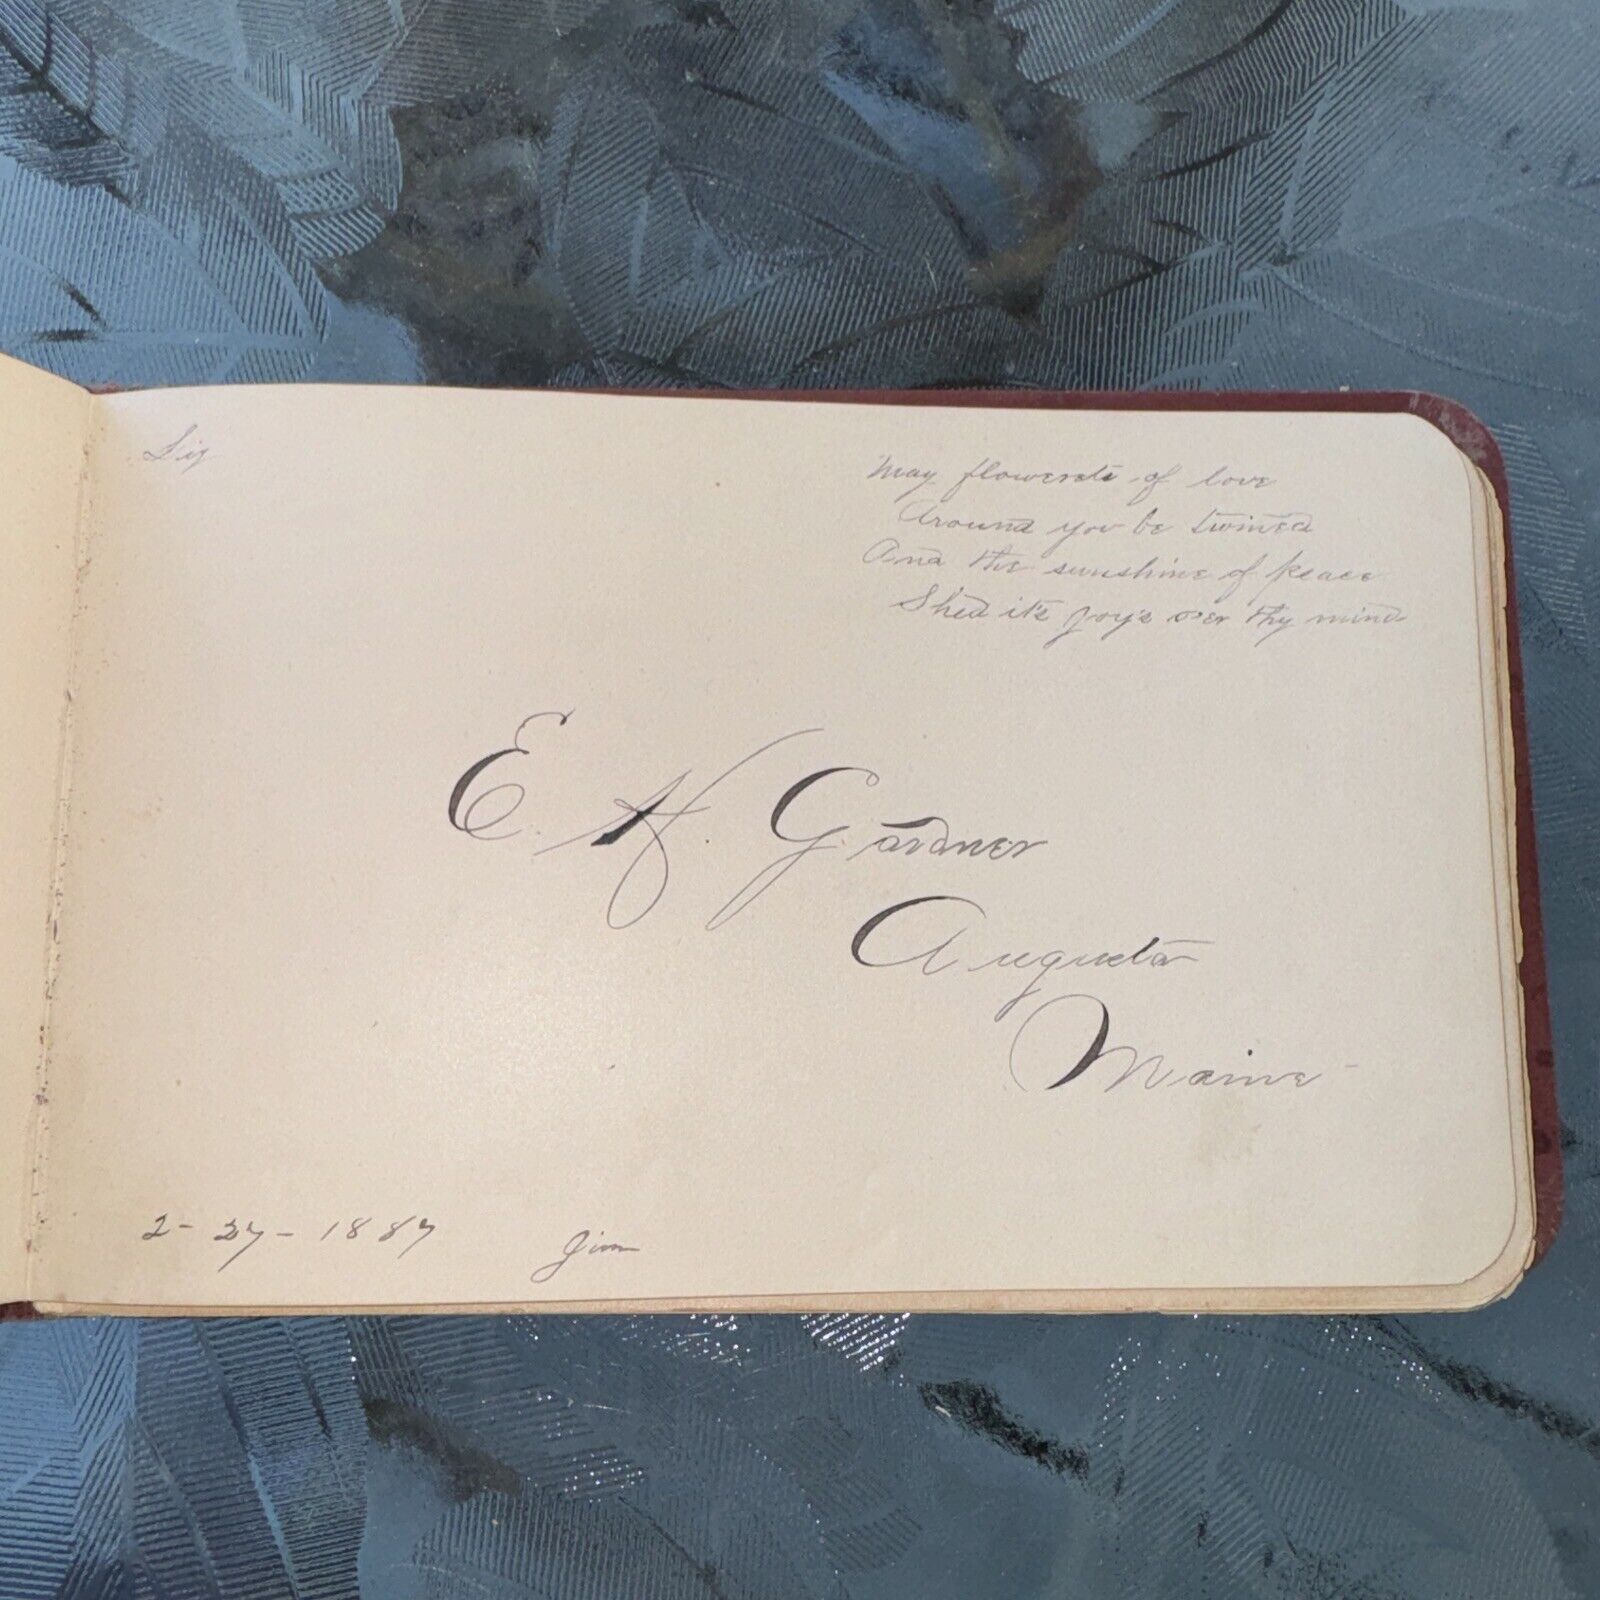 Liz
May flowerets of love
Around you be twined
And the sunshine of peace
Shed it's joy's o'er thy mind
E. H. Gardner
Augusta
Maine
2-27-1887 Jim